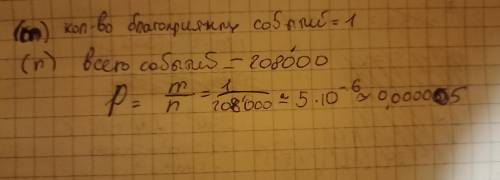 (m) кол-во благоприятных событий = 1
(n) всего событий – 208000
P = m/n = 1/208000 ≈ 5 · 10⁻⁶ ≈ 0,000005